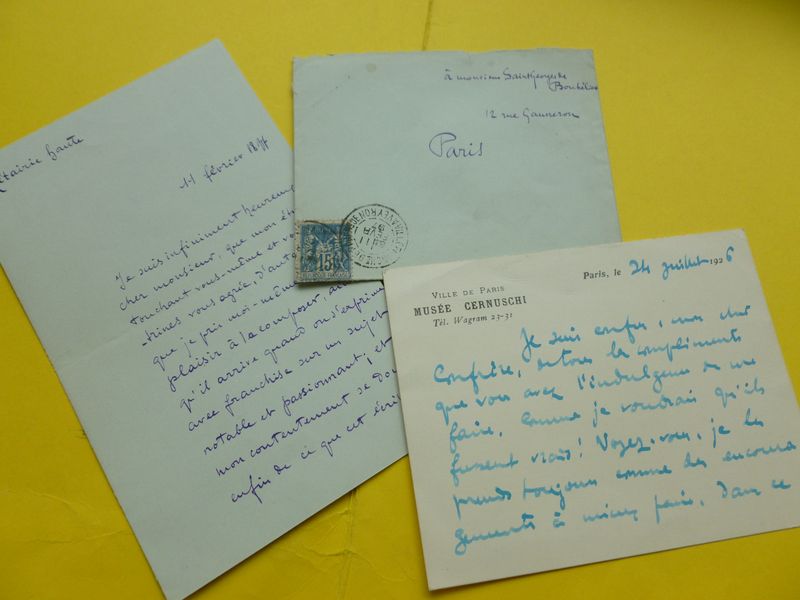 étairie haute
11 février
Je suis infiniment heureux
cher monsieur, que mon
touchant vous-même et vos
trines vous agrée, d'autant
que je pris moi-même
plaisir à le composer,
qu'il arrive quand on s'exprime
avec franchise sur un sujet
notable et passionnant, et
mon contentement se
enfin de ce que cet
à monsieur Saint Georges de
Bouhélier
12 rue Ganneron
Paris
15
VILLE DE PARIS
MUSÉE CERNUSCHI
Tél. Wagram 23-31
Paris, le 24 juillet 1926
Je suis confus, mon cher
Confrère, de tous les compliments
que vous avez l'indulgence de me
faire, comme je voudrais qu'ils
fussent vrais! Voyez-vous, je les
prends toujours comme des encoura
gements à mieux faire. Dans ce